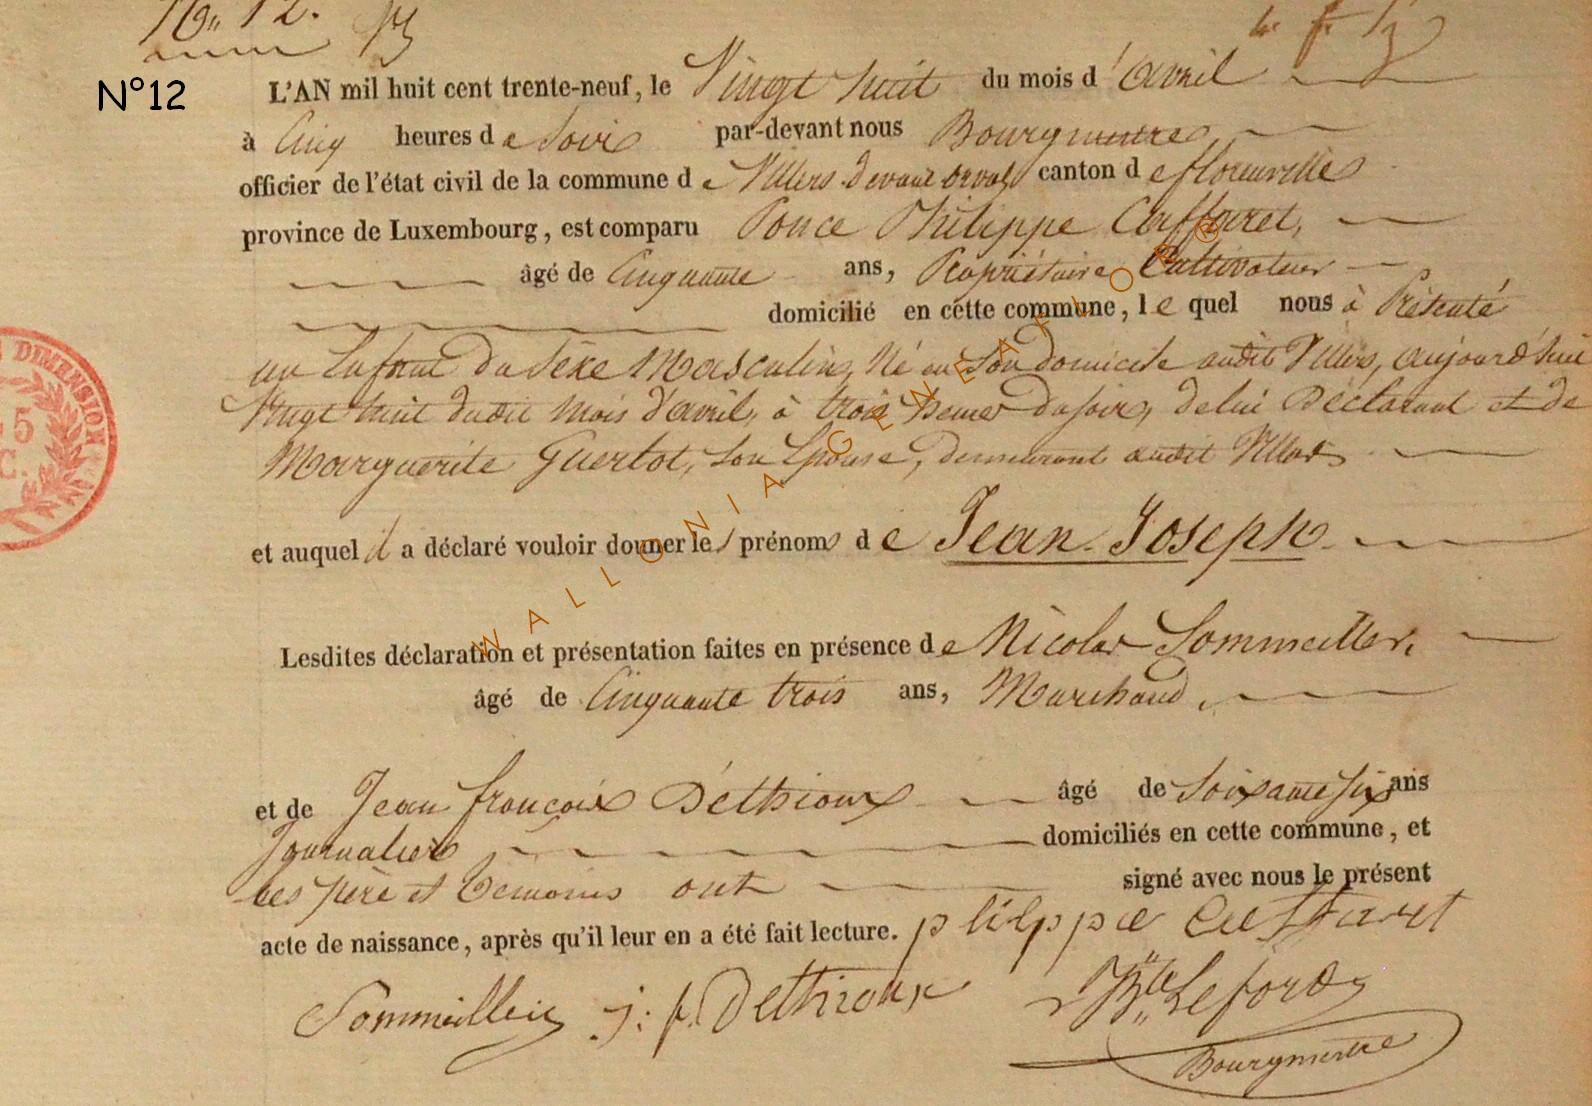 No 12.
N°12
L'AN mil huit cent trente-neuf, le Vingt huit du mois d'avril
à Cinq heures de Soir par-devant nous Bourgmestre
officier de l'état civil de la commune de Villers devant orval canton de florenville
province de Luxembourg, est comparu Ponce Philippe Caffaret,
âgé de Cinquante ans, Propriétaire Cultivateur
domicilié en cette commune, lequel nous à Présenté
un Enfant du Sexe Masculin, Né en Son domicile audit Villers, aujourd'hui
Vingt huit dudit mois d'avril, à trois heures du soir, de lui Déclarant et de
Marguerite Guerlot, son Epouse, demeurant audit Villers
et auquel il a déclaré vouloir donner les prénoms de Jean Joseph
Lesdites déclaration et présentation faites en présence de Nicolas Sommeillier,
âgé de Cinquante trois ans, Marchand,
et de Jean françois Déthioux âgé de Soixante six ans
Journalier domiciliés en cette commune, et
les père et temoins ont signé avec nous le présent
acte de naissance, après qu'il leur en a été fait lecture. philippe Caffaret
Sommeillier j: f. Dethioux Bte Leford
Bourgmestre
DIMENSION
WALLONIA GENEAFLOR